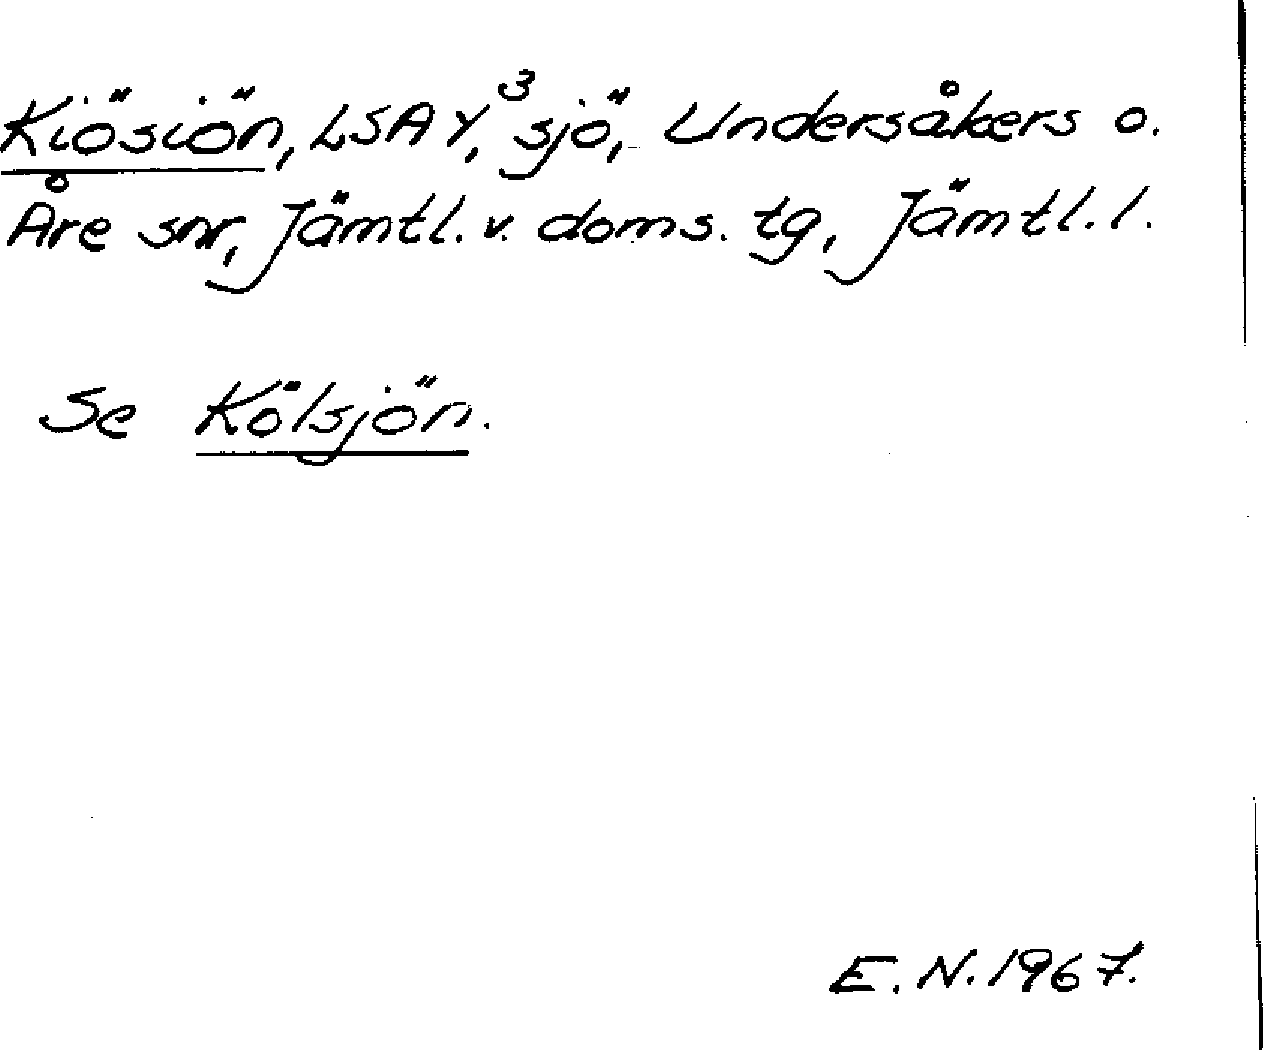 Kiösiön, LSA Y,³ sjö, Undersåkers o.
Åre snr, Jämtl. v. doms. tg, Jämtl. l.
Se Kölsjön.
E. N. 1967.